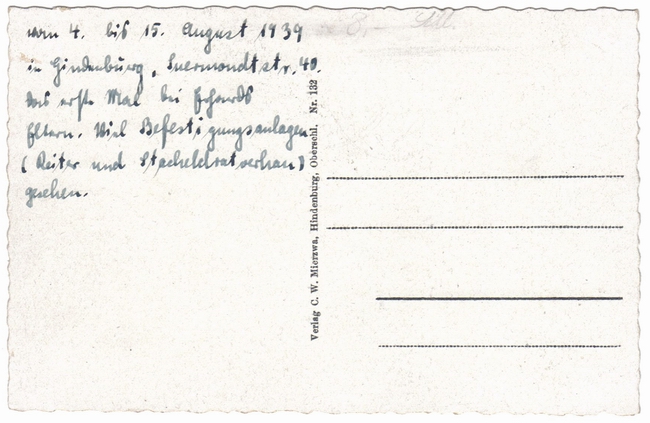 vom 4. bis 15. August 1939
in Hindenburg, Suermondtstr. 40.
Das erste Mal bei Erhards
Eltern. Viel Befestigungsanlagen
(Reiter und Stacheldratverhau)
gesehen.
Verlag C. W. Mierzwa, Hindenburg, Oberschl. Nr. 132